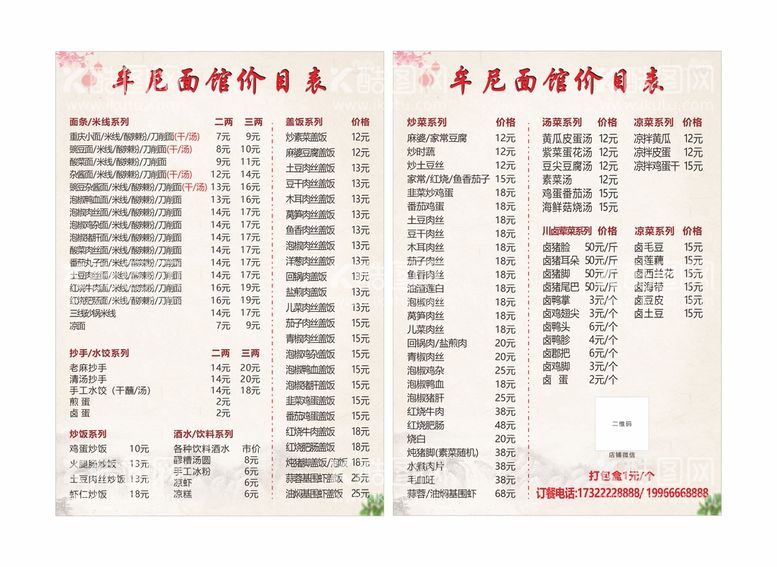 牟尼面馆价目表
面条/米线系列 二两 三两
重庆小面/米线/酸辣粉/刀削面(干/汤) 7元 9元
豌豆面/米线/酸辣粉/刀削面(干/汤) 8元 10元
酸菜面/米线/酸辣粉/刀削面 9元 11元
杂酱面/米线/酸辣粉/刀削面(干/汤) 12元 14元
豌豆杂酱面/米线/酸辣粉/刀削面(干/汤) 13元 16元
泡椒鸭血面/米线/酸辣粉/刀削面 13元 16元
泡椒肉丝面/米线/酸辣粉/刀削面 14元 17元
泡椒鸡杂面/米线/酸辣粉/刀削面 14元 17元
泡椒猪肝面/米线/酸辣粉/刀削面 14元 17元
酸菜肉丝面/米线/酸辣粉/刀削面 14元 17元
番茄丸子面/米线/酸辣粉/刀削面 14元 17元
土豆肉丝面/米线/酸辣粉/刀削面 14元 17元
红烧牛肉面/米线/酸辣粉/刀削面 16元 19元
红烧肥肠面/米线/酸辣粉/刀削面 16元 19元
三线砂锅米线 14元 17元
凉面 7元 9元
抄手/水饺系列 二两 三两
老麻抄手 14元 20元
清汤抄手 14元 20元
手工水饺（干蘸/汤） 14元 18元
煎 蛋 2元
卤 蛋 2元
炒饭系列
鸡蛋炒饭 10元
火腿肠炒饭 13元
土豆肉丝炒饭 13元
虾仁炒饭 18元
酒水/饮料系列
各种饮料酒水 市价
醪糟汤圆 8元
手工冰粉 6元
凉虾 6元
凉糕 6元
盖饭系列 价格
炒素菜盖饭 12元
麻婆豆腐盖饭 12元
土豆肉丝盖饭 13元
豆干肉丝盖饭 13元
木耳肉丝盖饭 13元
莴笋肉丝盖饭 13元
鱼香肉丝盖饭 13元
泡椒肉丝盖饭 13元
洋葱肉丝盖饭 13元
回锅肉盖饭 13元
盐煎肉盖饭 13元
儿菜肉丝盖饭 13元
茄子肉丝盖饭 15元
青椒肉丝盖饭 15元
泡椒鸡杂盖饭 15元
泡椒鸭血盖饭 15元
泡椒猪肝盖饭 15元
韭菜鸡蛋盖饭 15元
番茄鸡蛋盖饭 15元
红烧牛肉盖饭 18元
红烧肥肠盖饭 18元
炖猪脚盖饭/泡饭 18元
蒜蓉基围虾盖饭 25元
油焖基围虾盖饭 25元
牟尼面馆价目表
炒菜系列 价格
麻婆/家常豆腐 12元
炒时蔬 12元
炒土豆丝 12元
家常/红烧/鱼香茄子 15元
韭菜炒鸡蛋 18元
番茄鸡蛋 18元
土豆肉丝 18元
豆干肉丝 18元
木耳肉丝 18元
茄子肉丝 18元
鱼香肉丝 18元
油渣莲白 18元
泡椒肉丝 18元
莴笋肉丝 18元
儿菜肉丝 18元
回锅肉/盐煎肉 20元
青椒肉丝 20元
泡椒鸡杂 25元
泡椒鸭血 18元
泡椒猪肝 25元
红烧牛肉 38元
红烧肥肠 48元
烧白 20元
炖猪脚(素菜随机) 38元
水煮肉片 38元
毛血旺 38元
蒜蓉/油焖基围虾 68元
汤菜系列 价格
黄瓜皮蛋汤 12元
紫菜蛋花汤 12元
豆尖豆腐汤 12元
素菜汤 12元
鸡蛋番茄汤 15元
海鲜菇烧汤 15元
凉菜系列 价格
凉拌黄瓜 12元
凉拌皮蛋 12元
凉拌鸡蛋干 15元
川卤荤菜系列 价格
卤猪脸 50元/斤
卤猪耳朵 50元/斤
卤猪脚 50元/斤
卤猪尾巴 50元/斤
卤鸭掌 3元/个
卤鸡翅尖 3元/个
卤鸭头 6元/个
卤鸭胗 4元/个
卤郡把 6元/个
卤鸡脚 3元/个
卤 蛋 2元/个
凉菜系列 价格
卤毛豆 15元
卤莲藕 15元
卤西兰花 15元
卤海带 15元
卤豆皮 15元
卤土豆 15元
二维码
店铺微信
打包盒1元/个
订餐电话:17322228888/ 19966668888